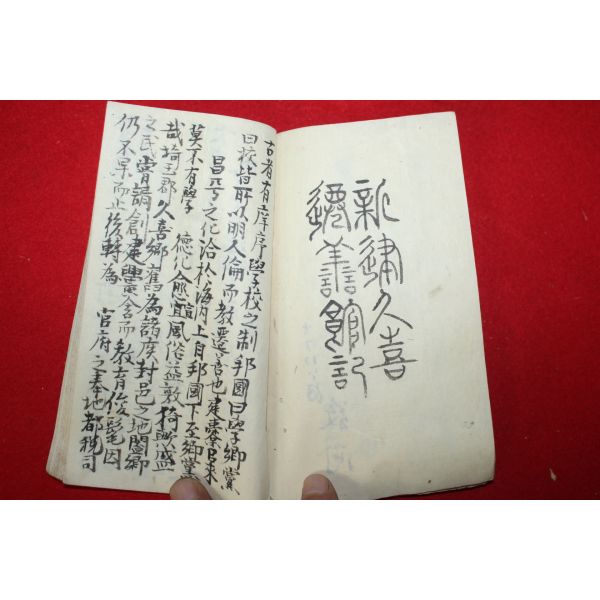 新建久喜
遷善館記
古者有庠序學校之制邦國曰學鄉黨
曰校皆所以明人倫而教遷善也建櫜以来
昌平之化洽於海内上自邦國下至鄉黨
莫不有學 德化愈宣風俗益敦猗歟盛
哉埼玉郡久喜鄉舊為諸侯封邑之地闔鄉
之民嘗請創建黌舍而教育俊髦因
仍不果而止後轉為 官府之奉地都税司